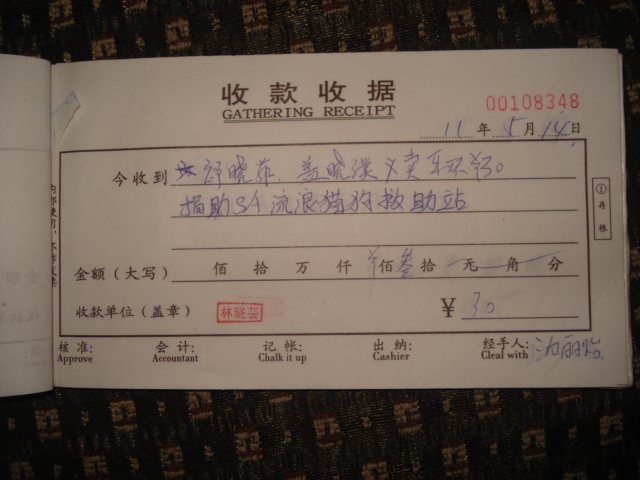 收款收据
GATHERING RECEIPT
00108348
11年5月14日
今收到 晓菲、 晓 义卖耳环30
捐助SA流浪猫狗救助站
金额（大写） 佰 拾 万 仟 佰叁拾 元 角 分
收款单位（盖章） 林晓芸 ¥ 30
核准: 会计: 记帐: 出纳: 经手人:
Approve Accountant Chalk it up Cashier Cleal with
①存根